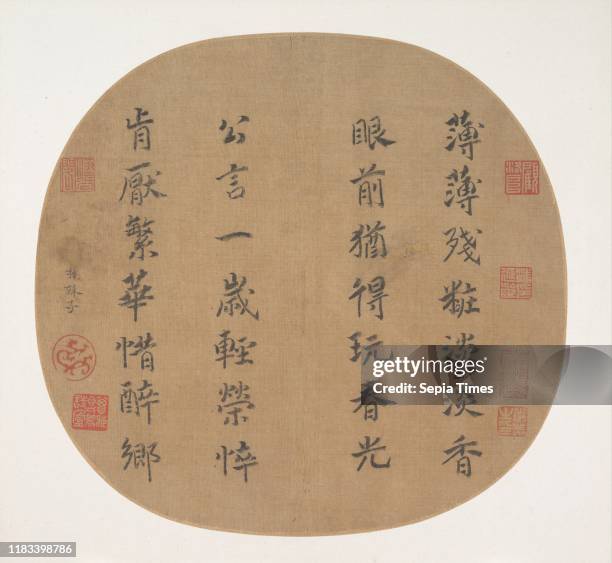 薄薄殘粧淡淡香
眼前猶得玩春光
公言一歲輕榮悴
肯厭繁華惜醉鄉
gettyimages
Credit: Sepia Times
1183398786